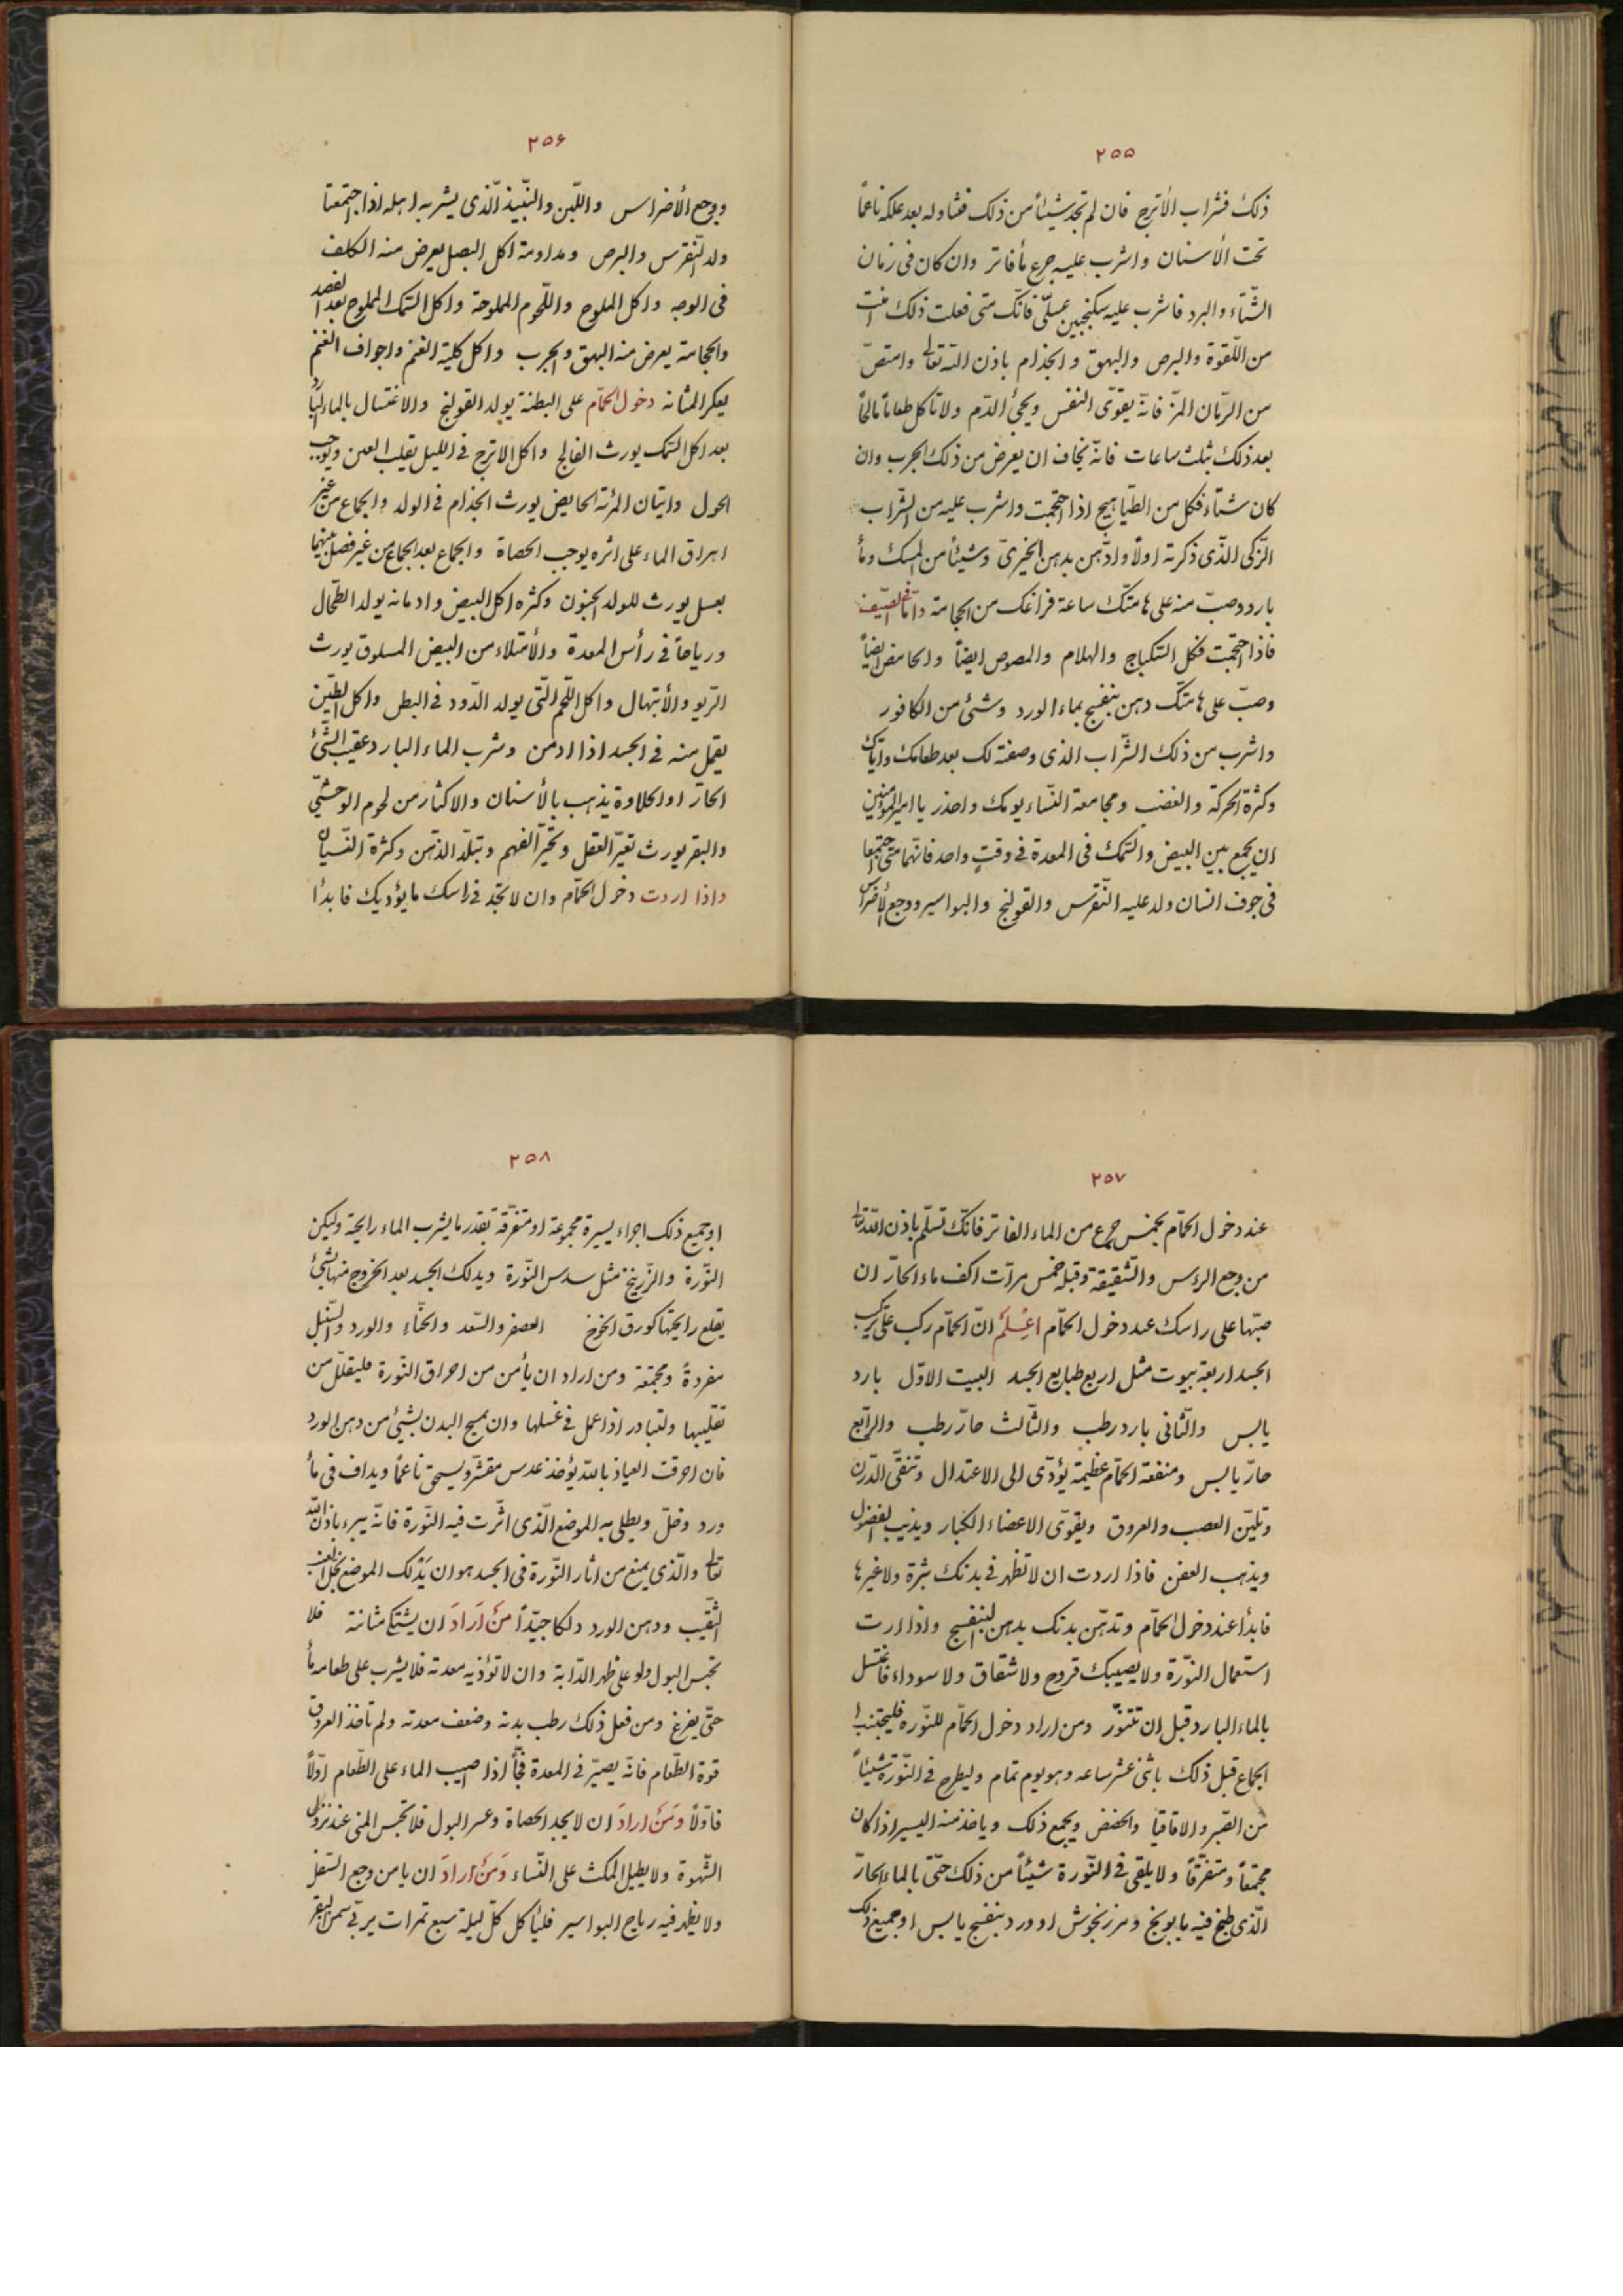 ٢٥٥
ذلك فشراب الأترج فان لم تجد شيئاً من ذلك فتناوله بعد علكه ناعماً
تحت الأسنان واشرب عليه جرع مأ فاتر وان كان فى زمان
الشّتاء والبرد فاشرب عليه سكنجبين عسلّى فانّك متى فعلت ذلك امنت
من اللّقوة والبرص والبهق والجذام باذن الله تعالى وامتصّ
من الرمّان المزّ فانّه يقوّى النفس ويحيى الدّم ولا تاكل طعاماً مالحاً
بعد ذلك بثلث ساعات فانّه يخاف ان يعرض من ذلك الجرب وان
كان شتاء فكل من الطّياهيج اذا احتجمت واشرب عليه من الشّراب
الزّكى الذّى ذكرته اولاً وادّهن بدهن الخيرىّ وشيئاً من المسك ومأ
بارد وصبّ منه على هامتّك ساعة فراغك من الحجامة وامّا فى الصّيف
فاذا احتجمت فكل السّكباج والهلام والمصوص ايضاً والحامض ايضاً
وصبّ على هامتّك دهن بنفسج بماء الورد وشئ من الكافور
واشرب من ذلك الشّراب الذى وصفته لك بعد طعامك وايّاك
وكثرة الحركة والغضب ومجامعة النّساء يومك واحذر يا امير المؤمنين
ان يجمع بين البيض والسّمك فى المعدة فى وقتٍ واحد فانّهما متى اجتمعا
فى جوف انسان ولد عليه النّقرس والقولنج والبواسير ووجع الأضراس
٢٥۶
ووجع الأضراس واللّبن والنّبيذ الّذى يشربه اهله اذا اجتمعتا
ولد النّقرس والبرص ومداومة اكل البصل يعرض منه الكلف
فى الوجه واكل الملوح واللّحوم المملوحة واكل السّمك المملوح بعد الفصد
والحجامة يعرض منه البهق والجرب واكل كلية الغنم واجواف الغنم
يعكر المثانه دخول الحمّام على البطنة يولد القولنج والاغتسال بالماء البارد
بعد اكل السّمك يورث الفالج واكل الاترج فى الليل يقلب العين ويوجب
الحول واتيان المرئة الحايض يورث الجذام فى الولد والجماع من غير
اهراق الماء على اثره يوجب الحصاة والجماع بعد الجماع من غير فصل بينهما
بعسل يورث للولد الجنون وكثره اكل البيض وادمانه يولد الطّحال
ورياحاً فى رأس المعدة والأمتلاء من البيض المسلوق يورث
الرّبو والأبتهال واكل اللّحم الّتى يولد الدّود فى البطن واكل الطّين
يقمل منه فى الجسد اذا ادمن وشرب الماء البارد عقيب الشّئ
الحارّ او الحلاوة يذهب بالأسنان والاكثار من لحوم الوحشّى
والبقر يورث تغيّر العقل وتحيّر الفهم وتبلّد الذّهن وكثرة النّسيان
واذا اردت دخول الحمّام وان لا تجد فى راسك ما يؤديك فابدأ
٢٥٧
عند دخول الحمّام بخمس جرع من الماء الفاتر فانّك تسلّم باذن الله تعالى
من وجع الرئس والشّقيقة وقبله خمس مرّات اكف ماء الحارّ ان
صبّها على راسك عند دخول الحمّام اعْلَم انّ الحمّام ركب على تركيب
الجسد اربعة بيوت مثل اربع طبايع الجسد البيت الاوّل بارد
يابس والثّانى بارد رطب والثّالث حارّ رطب والرّابع
حارّ يابس ومنفعة الحمّام عظيمة يؤدّى الى الاعتدال وتنقّى الدّرن
وتليّن العصب والعروق ويقوّى الاعضاء الكبار ويذيب الفضول
ويذهب العفن فاذا اردت ان لا تظهر فى بدنك بثرة ولا غيرها
فابدأ عند دخول الحمّام وتدهّن بدنك بدهن البنفسج واذا اردت
استعمال النوّرة ولا يصيبك قروح ولا شقاق ولا سوداء فاغتسل
بالماء البارد قبل ان تتنوّر ومن اراد دخول الحمّام للنوّره فليجتنب ا
الجماع قبل ذلك باثنى عشر ساعه وهو يوم تمام وليطرح فى النّورة شيئاً
من القبر والاقاقيا والحضض ويجمع ذلك وياخذ منه اليسير اذا كان
مجتمعاً ومتفرّقاً ولا يلقى فى النّورة شيئاً من ذلك حتّى بالماء الحارّ
الّذى طبخ فيه بابونج ومرزنجوش او ورد بنفسج يابس او جميع ذلك
٢٥٨
او جميع ذلك اجزاء يسيرة مجموعة او متفرّقة بقدر ما يشرب الماء رايحة وليكن
النوّرة والزّرنيخ مثل سدس النّورة ويدلك الجسد بعد الخروج منها بشئ
يقلع رايحتها كورق الخوخ العصفر والسّعد والحنّاء والورد والسّنبل
مفردةً ومجتمعة ومن اراد ان يأمن من احراق النّورة فليقلّل من
تقليبها ولتبادر اذا عمل فى غسلها وان يمسح البدن بشيئ من دهن الورد
فان احرقت العياذ بالله يؤخذ عدس مقشّر ويسحق ناعماً ويداف فى مأ
ورد وخلّ ويطلى به الموضع الّذى اثّرت فيه النّورة فانّه يبرء باذن الله
تعالى والّذى يمنع من اثار النّورة فى الجسد هو ان يَدْلك الموضع بخلّ العنب
الثّقيب ودهن الورد دلكا جيّداً مَنْ اَرادَ ان يشتكى مثانته فلا
تحبس البول ولو على ظهر الدّابة وان لا تؤذيه معدته فلا يشرب على طعامه مأ
حتّى يفرغ ومن فعل ذلك رطب بدنه وضعف معدته ولم تاخذ العروق
قوة الطّعام فانّه يصيّر فى المعدة فجّاً اذا صبيب الماء على الطّعام اوّلاً
فاوّلاً وَمَنْ ارادَ ان لا يجد الحصاة وعسر البول فلا تحبس المنى عند نزول
الشّهوة ولا يطيل المكث على النّساء وَمَنْ ارادَ ان يامن وجع السّفل
ولا يظهر فيه رياح البواسير فليأكل كلّ ليلة سبع تمرات برنّى بسمن البقر